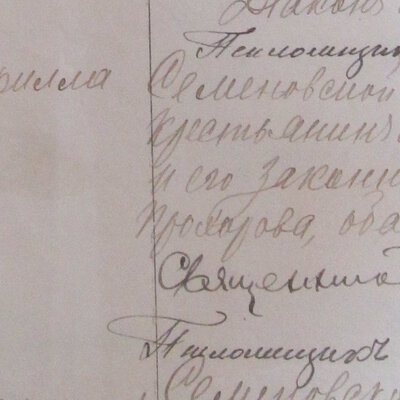 Законн
Псаломщик
рилла Семеновской
крестьянинъ
и его законн
Прохорова, оба
Священни
Псаломщикъ
Семеновск